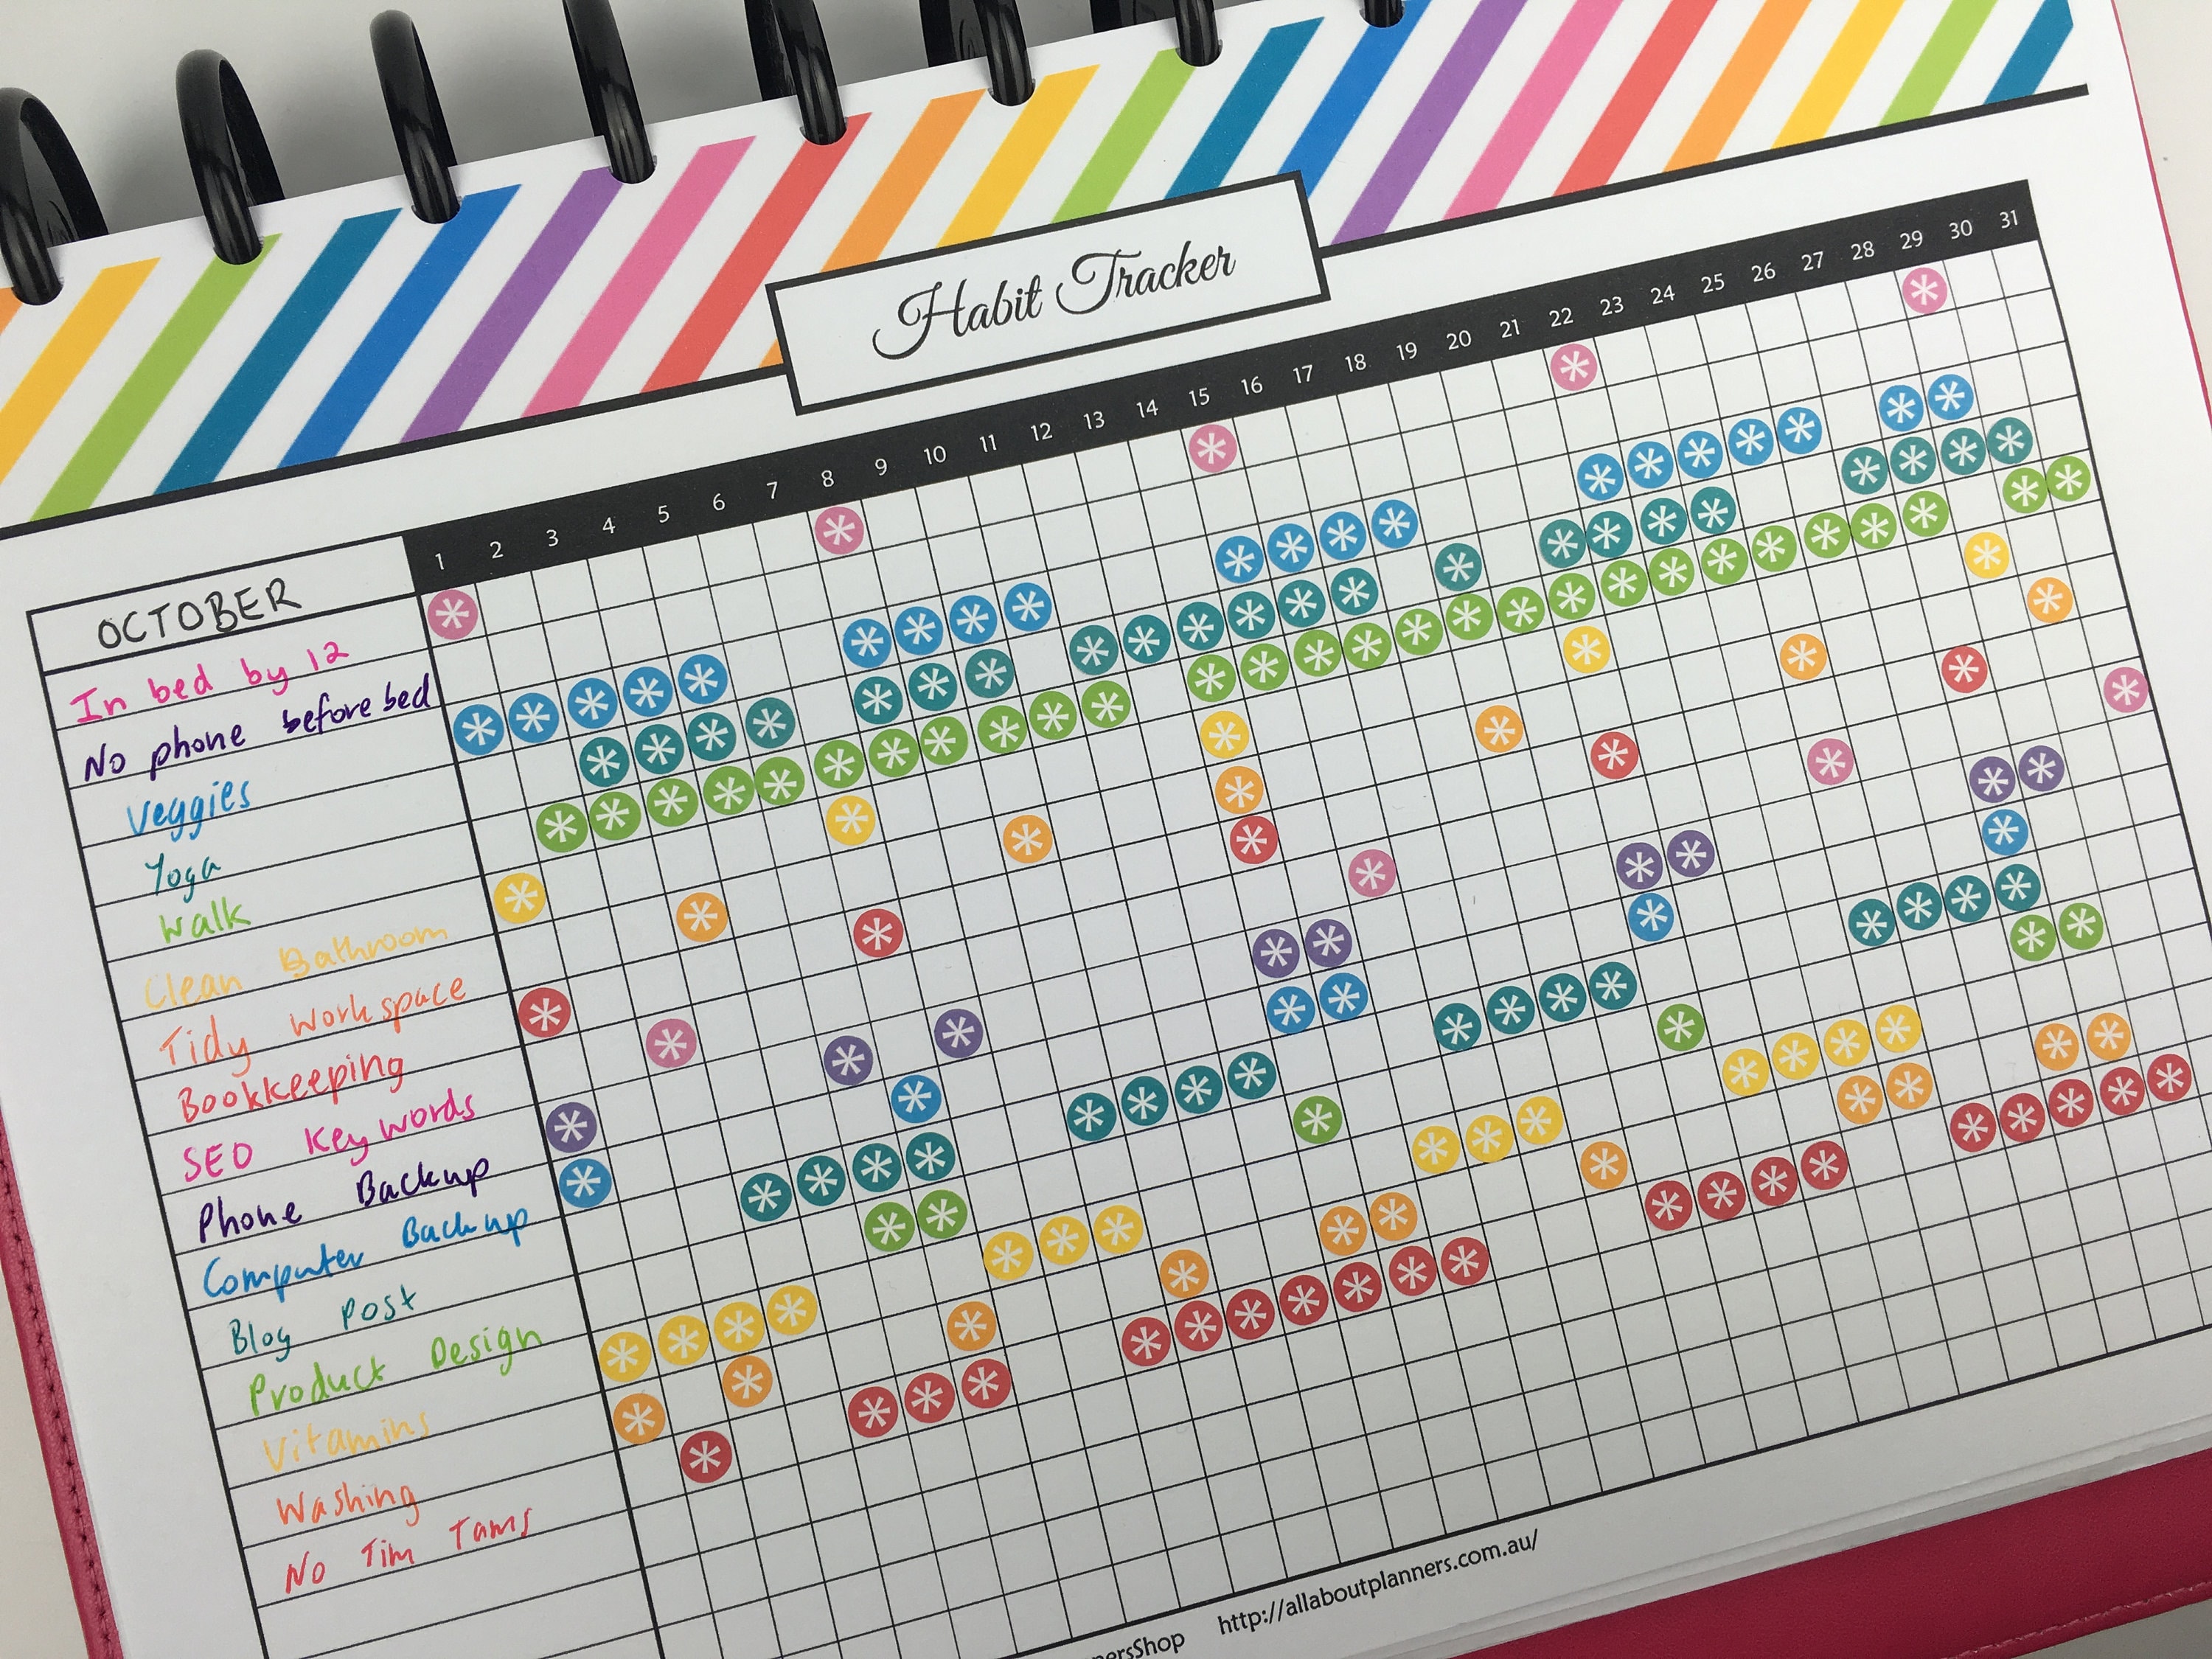 Habit Tracker
1 2 3 4 5 6 7 8 9 10 11 12 13 14 15 16 17 18 19 20 21 22 23 24 25 26 27 28 29 30 31
OCTOBER
In bed by 12
No phone before bed
Veggies
Yoga
Walk
Clean Bathroom
Tidy Workspace
Bookkeeping
SEO Keywords
Phone Backup
Computer Backup
Blog Post
Product Design
Vitamins
Washing
No Tim Tams
nersShop http://allaboutplanners.com.au/